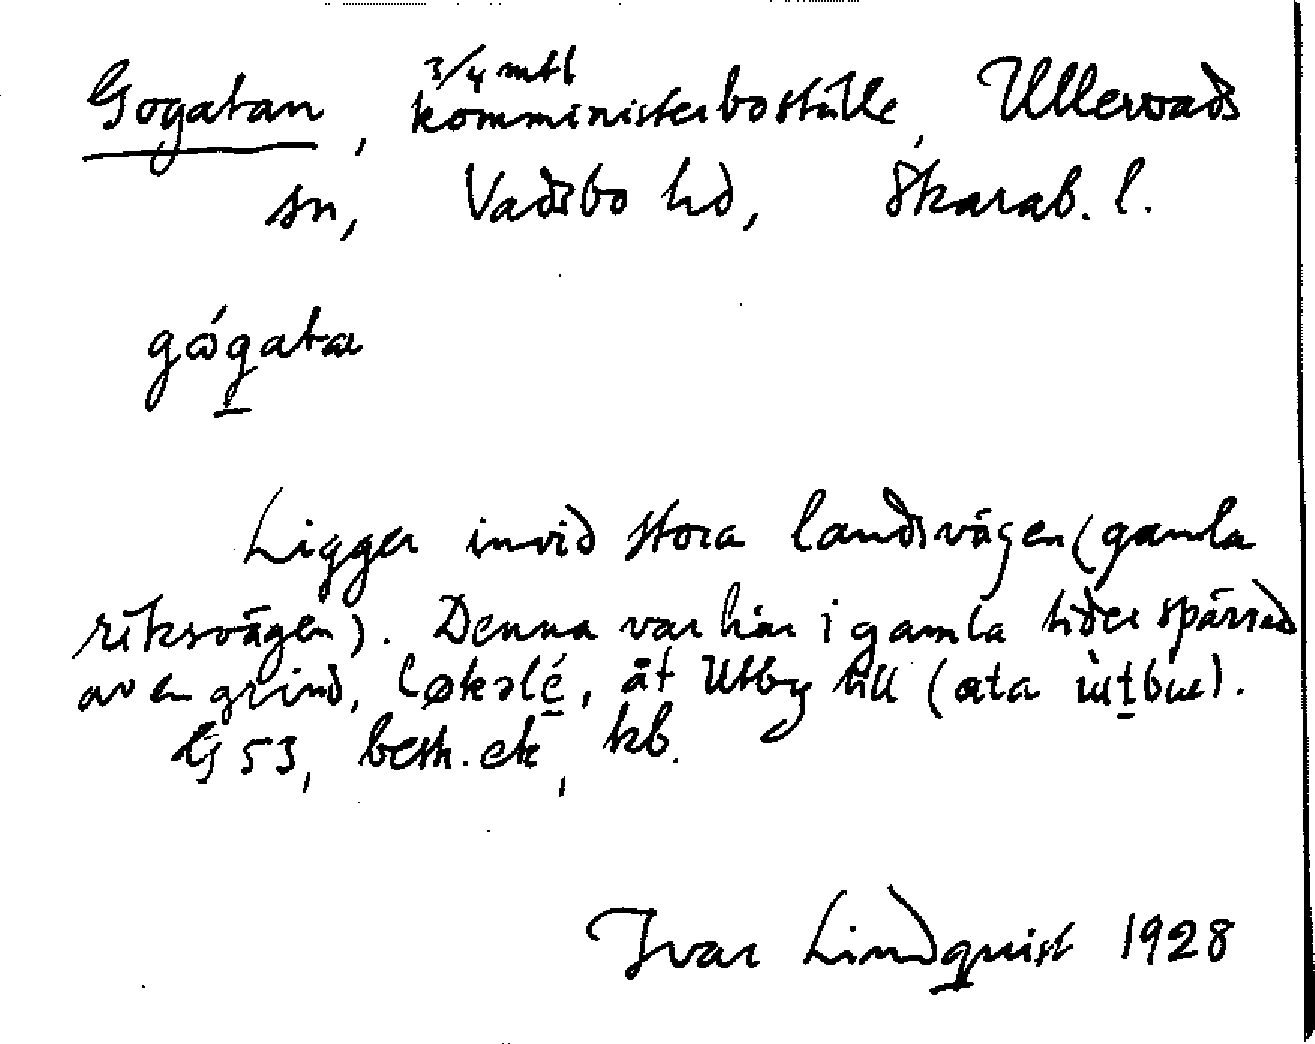 Gogatan, 3/4 mtl komministerboställe, Ullervads
sn, Vadsbo hd, Skarab. l.
gógata
Ligger invid stora landsvägen (gamla
riksvägen). Denna var här i gamla tider spärrad
av en grind, åt Utby till
53, kb.
Ivar Lindquist 1928